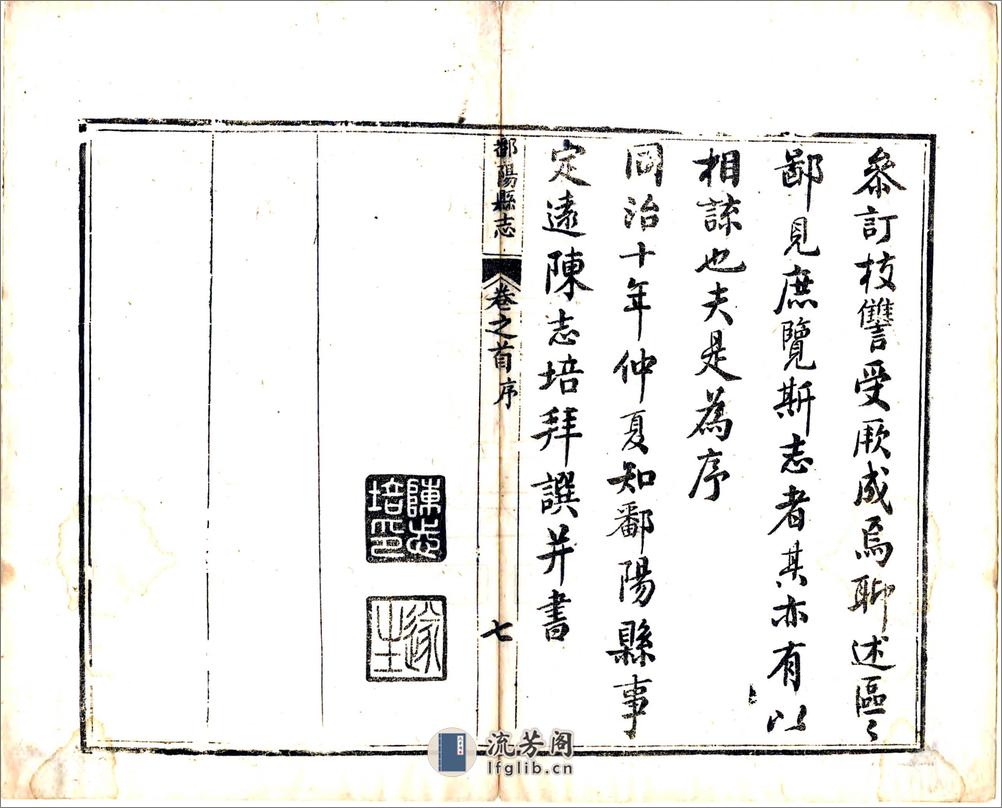 叅訂校讐受厥成焉聊述區〻
鄙見庶覽斯志者其亦有以
相諒也夫是為序
同治十年仲夏知鄱陽縣事
定遠陳志培拜譔并書
鄱陽縣志
卷之首
序
七
陳志
培印
流芳阁
lfglib.cn